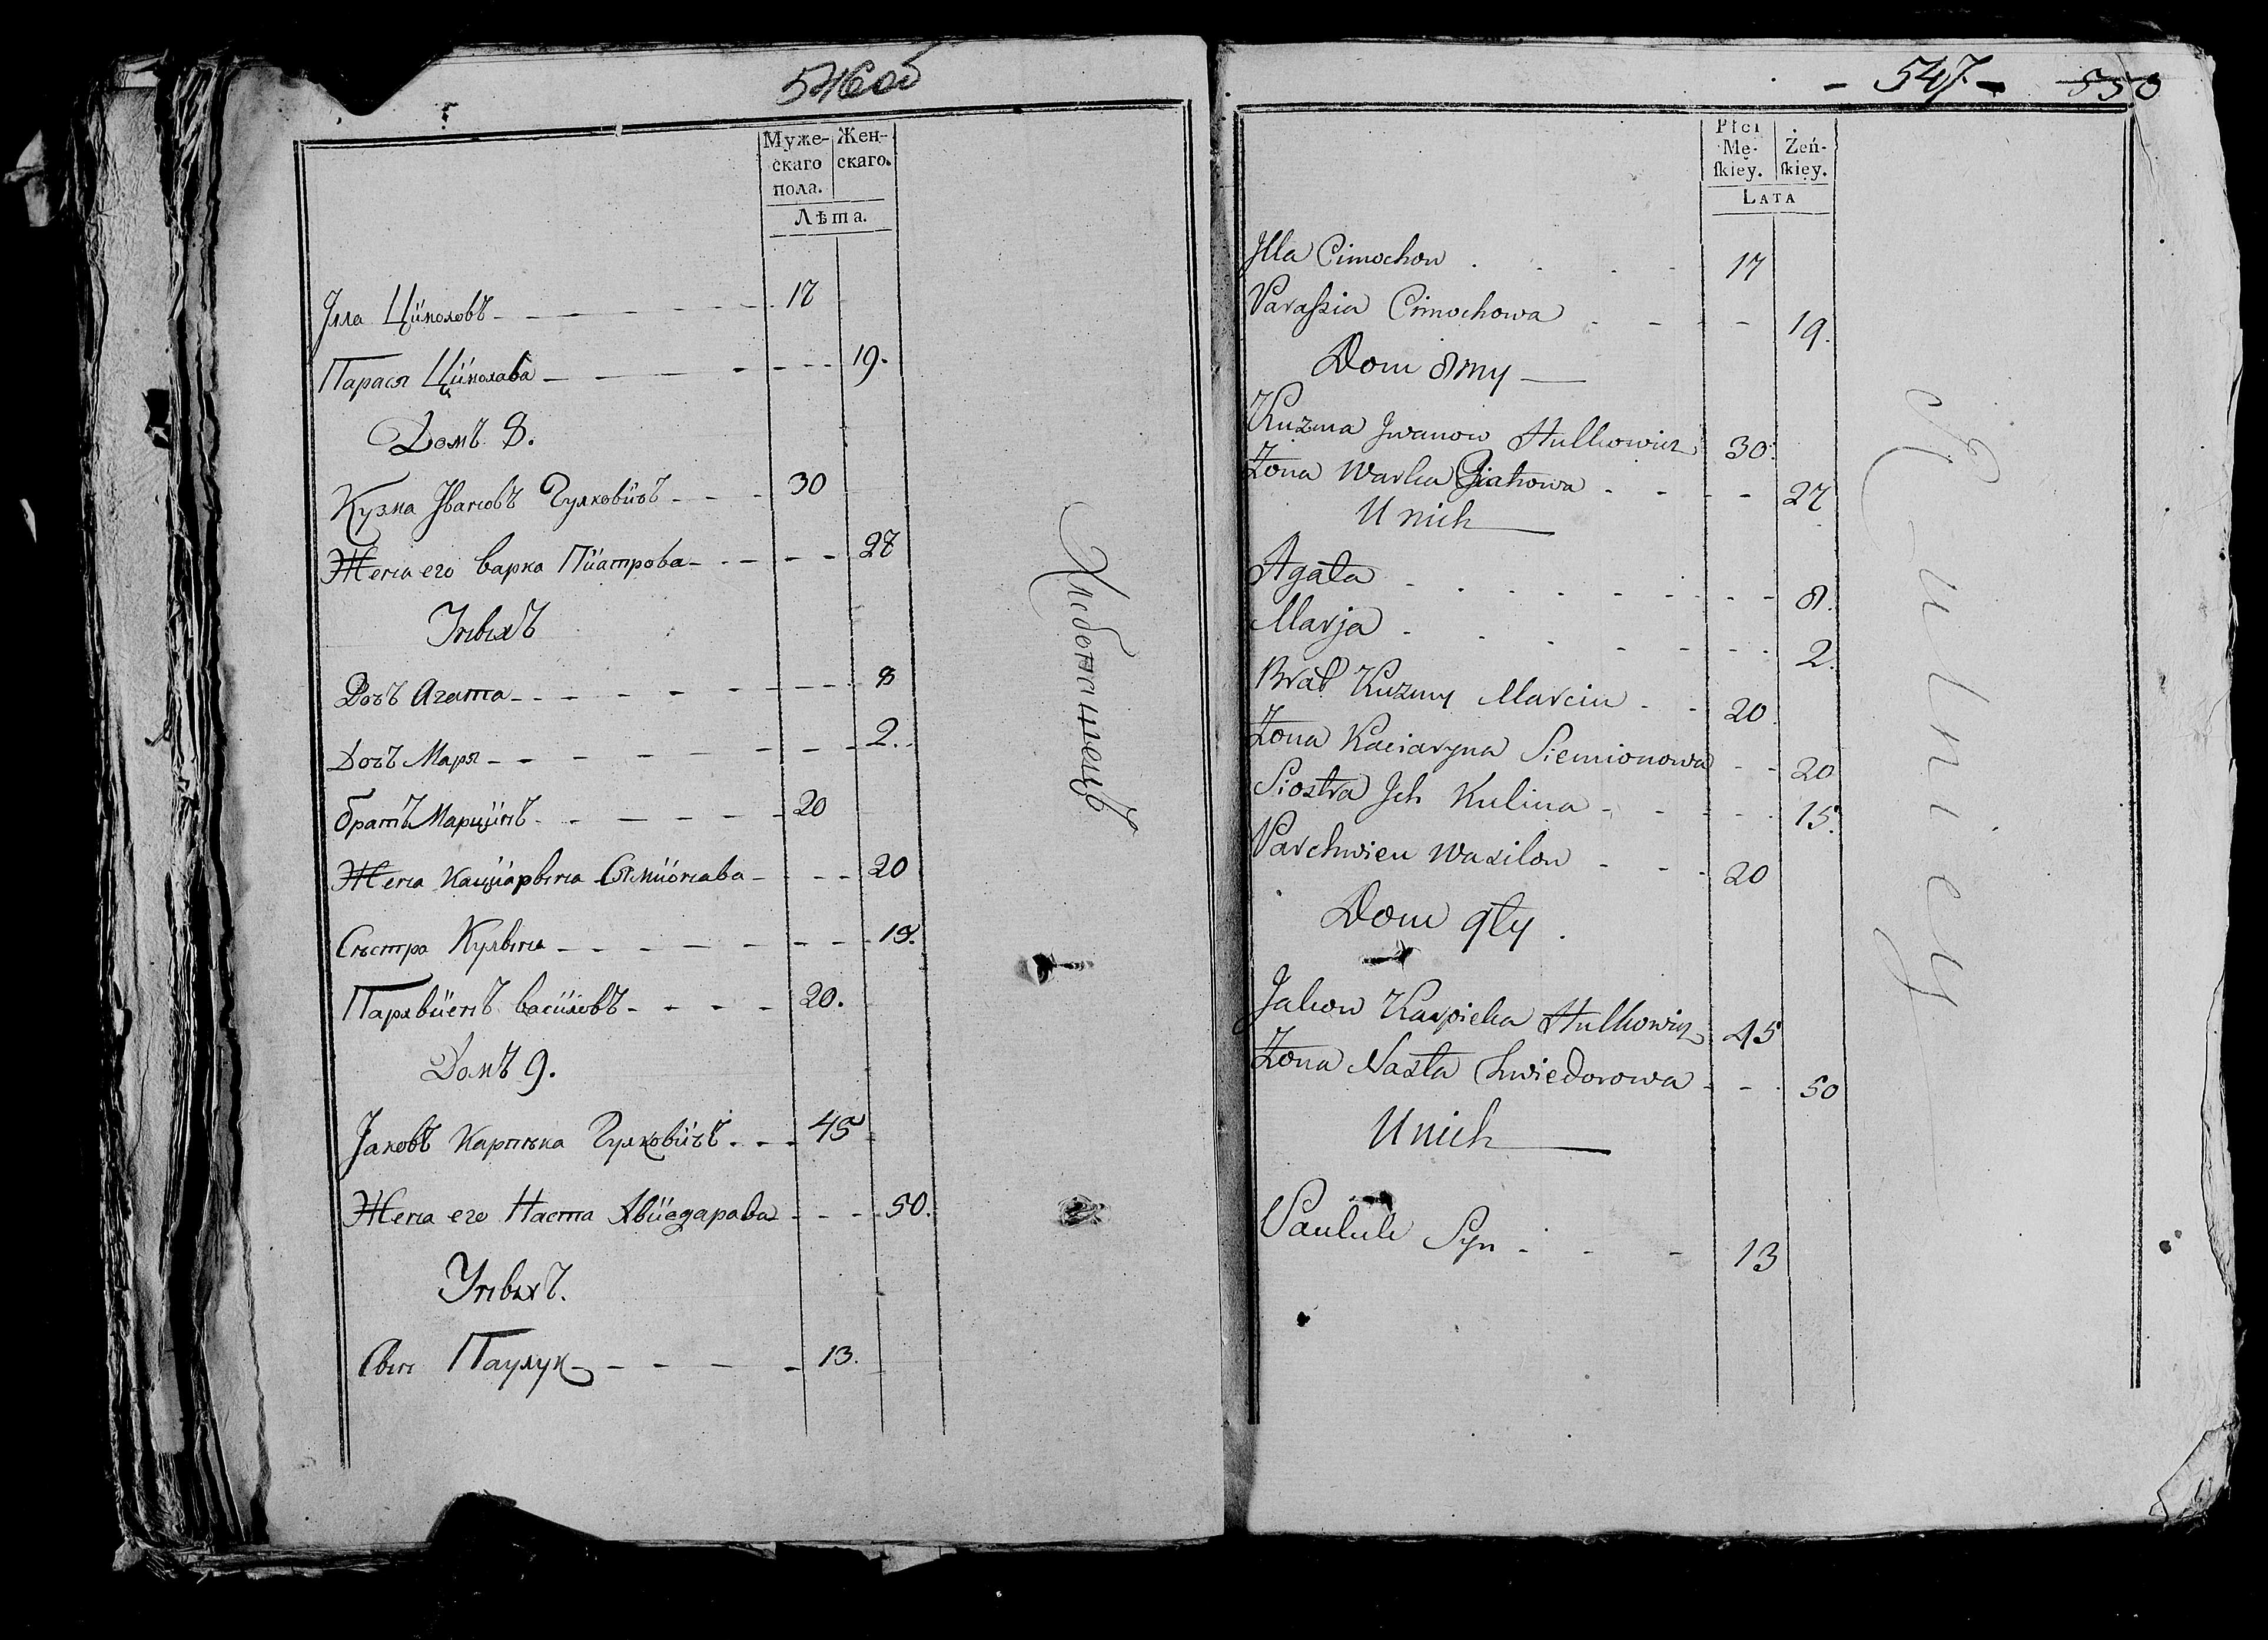 546об
Муже-
скаго
пола.
Жен-
скаго.
Лѣта.
Јлла Цімоховъ 17
Парася Цімохава 19.
Домъ 8.
Кузма Јвановъ Гулковічъ 30
Жена его варка Піатрова 27
Уныхъ
Дочъ Агата 8
Дочъ Маря 2.
братъ Марцінъ 20
Жена Каціарына Сяміонава 20
Сѣстра Кулына 15.
Пархвіенъ васіловъ 20.
Домъ 9.
Јаковъ Карпѣка Гулковічъ 45
Жена его Наста Хвіедарава 50.
Уныхъ.
Сын Паулук 13.
Хлебопашецъ
- 547. - 550
Płci
Mę-
ſkiey.
Żeń-
ſkiey.
LATA
Jlla Cimochow 17
Paraſzia Cimochowa 19.
Dom 8my
Kuzma Jwanow Hulkowicz 30.
Żona Warka 27
U nich
Agata 8.
Marja 2.
Brat Kuzmy Marcin 20
Żona Kaciaryna Siemionowa 20
Siostra Jch Kulina 15.
Parchwien Wasilow 20
Dom 9ty.
Jakow Karpieka Hulkowicz 45
Żona Nasta Chwiedorowa 50
U nich
Pauluk Syn 13
Rolniey